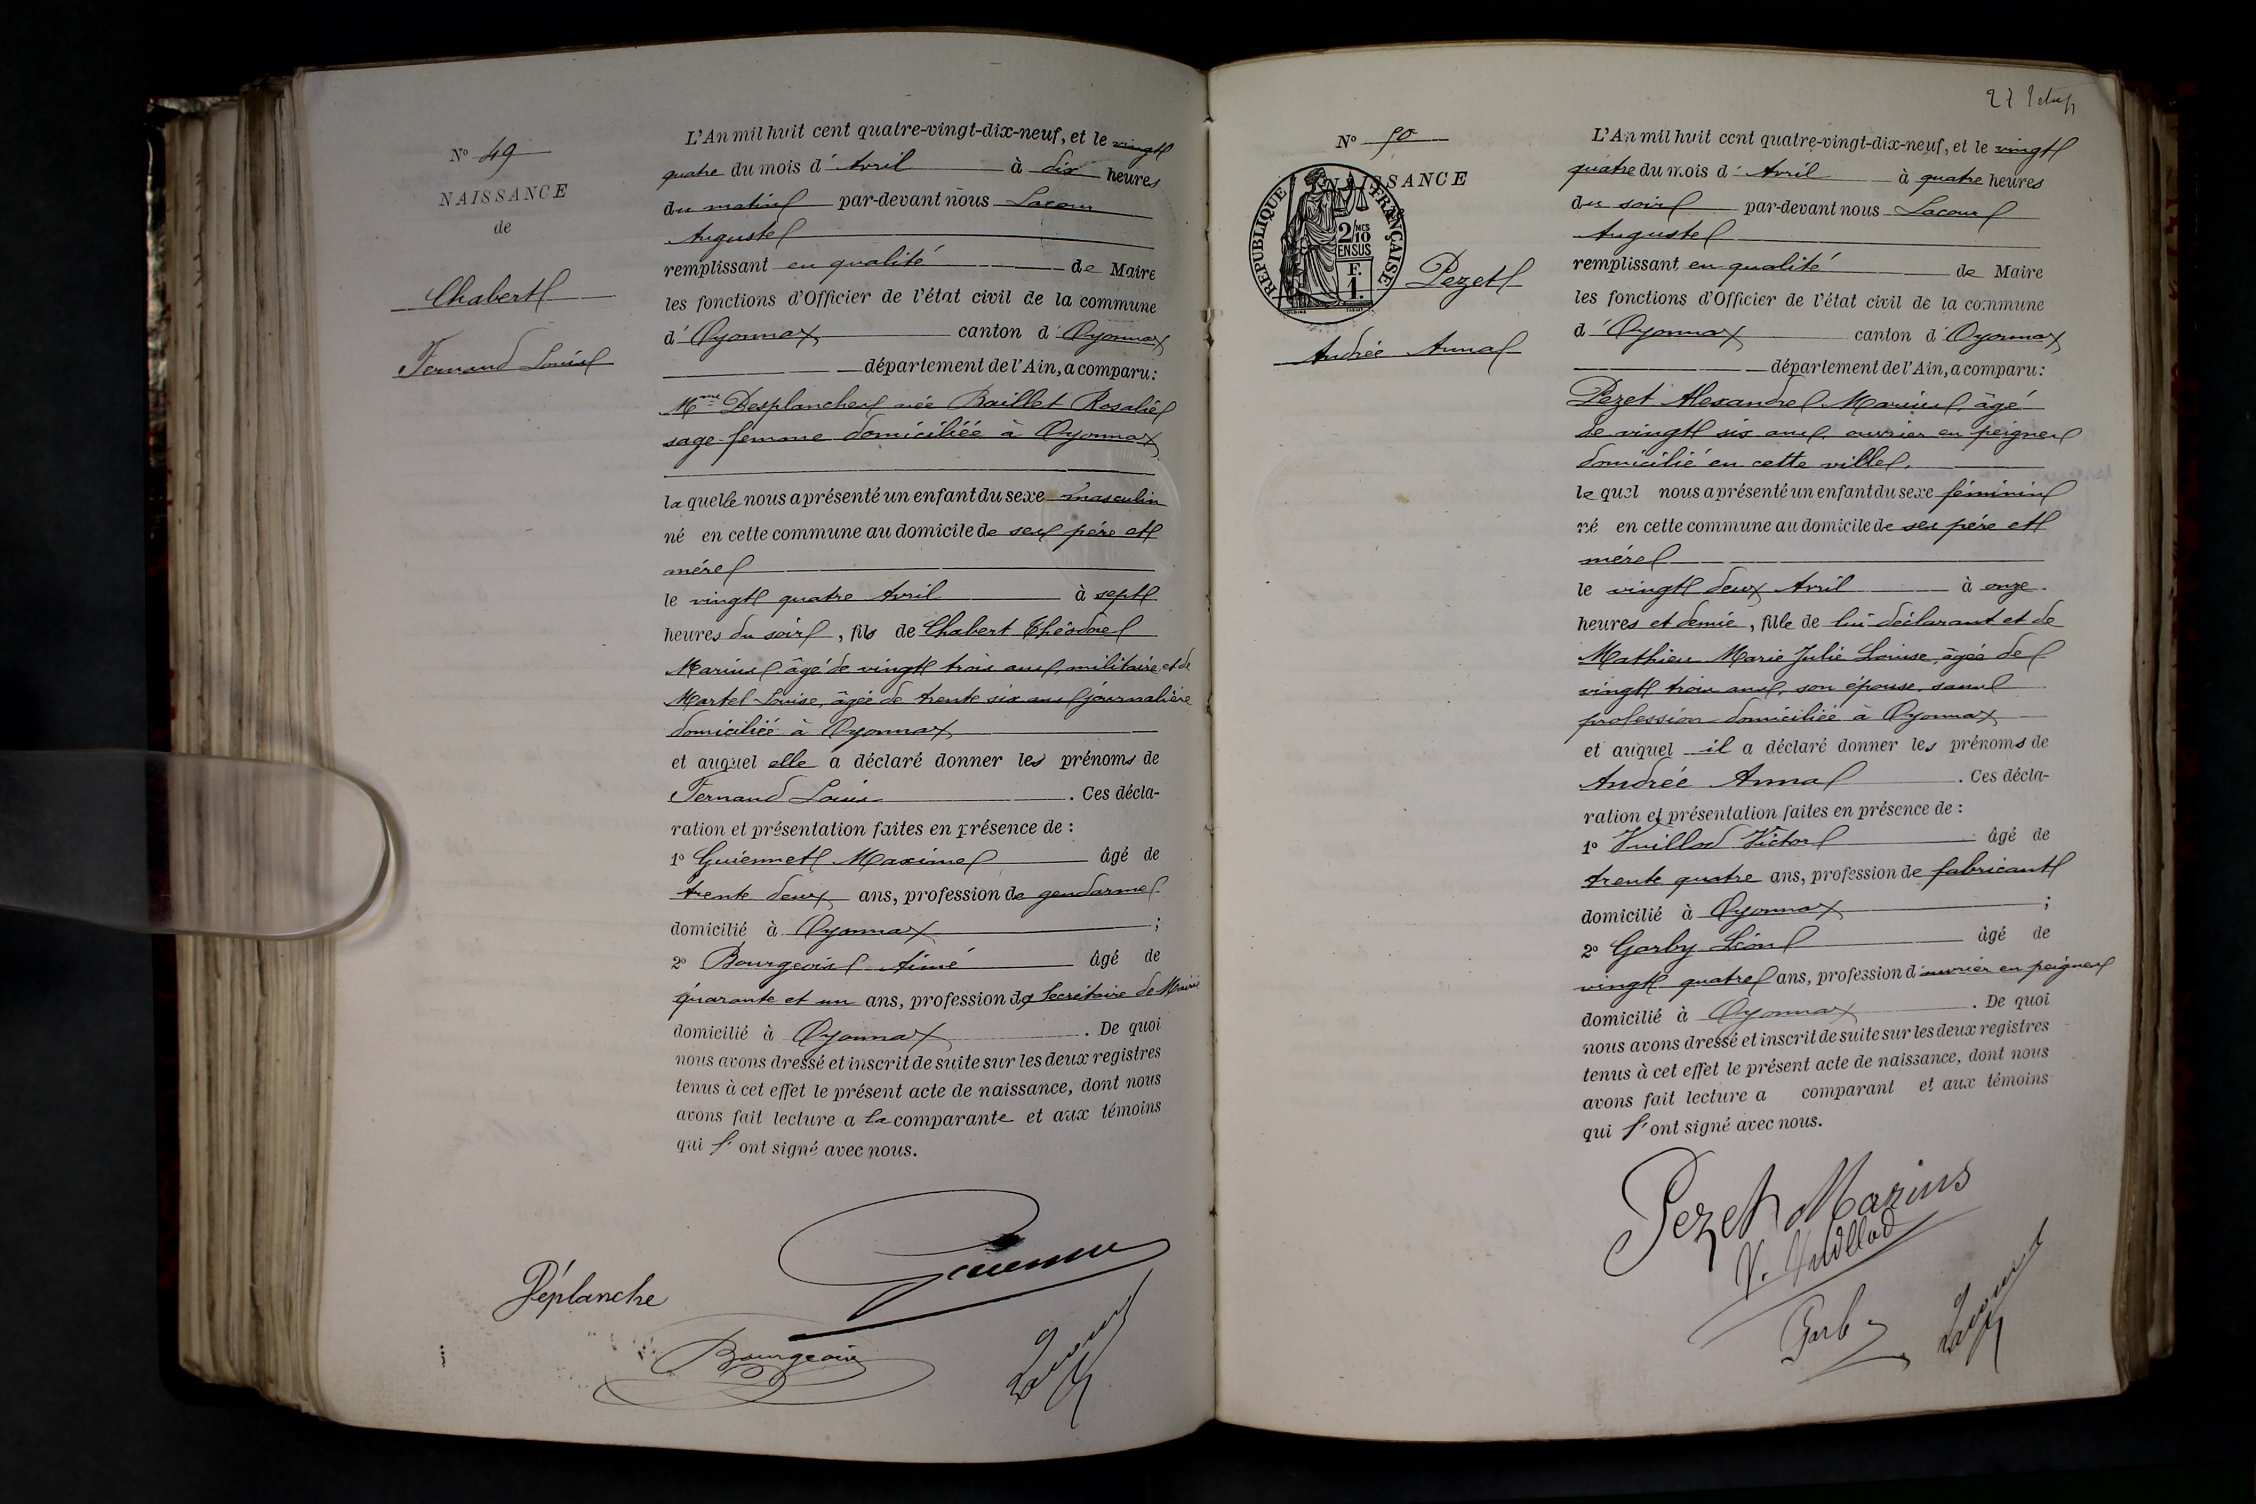 N° 49
NAISSANCE
de
Chabert
Fernand Louis
L'An mil huit cent quatre-vingt-dix-neuf, et le vingt
quatre du mois d' Avril à dix heures
du matin par-devant nous Lacour
Auguste
remplissant en qualité de Maire
les fonctions d'Officier de l'état civil de la commune
d' Oyonnax canton d' Oyonnax
département de l'Ain, a comparu :
Mme Desplanches née Baillet Rosalie
sage-femme domiciliée à Oyonnax
laquelle nous a présenté un enfant du sexe masculin
né en cette commune au domicile de ses père et
mère
le vingt quatre Avril à sept
heures du soir, fils de Chabert Théodore
Marius âgé de vingt trois ans, militaire et de
Martel Louise, âgée de trente six ans journalière
domiciliée à Oyonnax
et auquel elle a déclaré donner les prénoms de
Fernand Louis. Ces décla-
ration et présentation faites en présence de :
1° Guiennet Maxime âgé de
trente deux ans, profession de gendarme
domicilié à Oyonnax ;
2° Bourgeois Aimé âgé de
quarante et un ans, profession de Secrétaire de Mairie
domicilié à Oyonnax. De quoi
nous avons dressé et inscrit de suite sur les deux registres
tenus à cet effet le présent acte de naissance, dont nous
avons fait lecture a la comparante et aux témoins
qui l' ont signé avec nous.
Déplanche
Bourgeois
Lacour
27
N° 50
NAISSANCE
RÉPUBLIQUE FRANÇAISE
2/10 MES
EN SUS
F.
1.
Pezet
Andrée Anna
L'An mil huit cent quatre-vingt-dix-neuf, et le vingt
quatre du mois d' Avril à quatre heures
du soir par-devant nous Lacour
Auguste
remplissant en qualité de Maire
les fonctions d'Officier de l'état civil de la commune
d' Oyonnax canton d' Oyonnax
département de l'Ain, a comparu :
Pezet Alexandre Marius, âgé
de vingt six ans, ouvrier en peignes
domicilié en cette ville.
lequel nous a présenté un enfant du sexe féminin
né en cette commune au domicile de ses père et
mère
le vingt deux Avril à onze
heures et demie, fille de lui déclarant et de
Mathieu Marie Julie Louise, âgée de
vingt trois ans, son épouse, sans
profession domiciliée à Oyonnax
et auquel il a déclaré donner les prénoms de
Andrée Anna. Ces décla-
ration et présentation faites en présence de :
1° Vuillod Victor âgé de
trente quatre ans, profession de fabricant
domicilié à Oyonnax ;
2° Garby Léon âgé de
vingt quatre ans, profession d'ouvrier en peignes
domicilié à Oyonnax. De quoi
nous avons dressé et inscrit de suite sur les deux registres
tenus à cet effet le présent acte de naissance, dont nous
avons fait lecture a comparant et aux témoins
qui l' ont signé avec nous.
Pezet Marius
V. Vuillod
Garby
Lacour